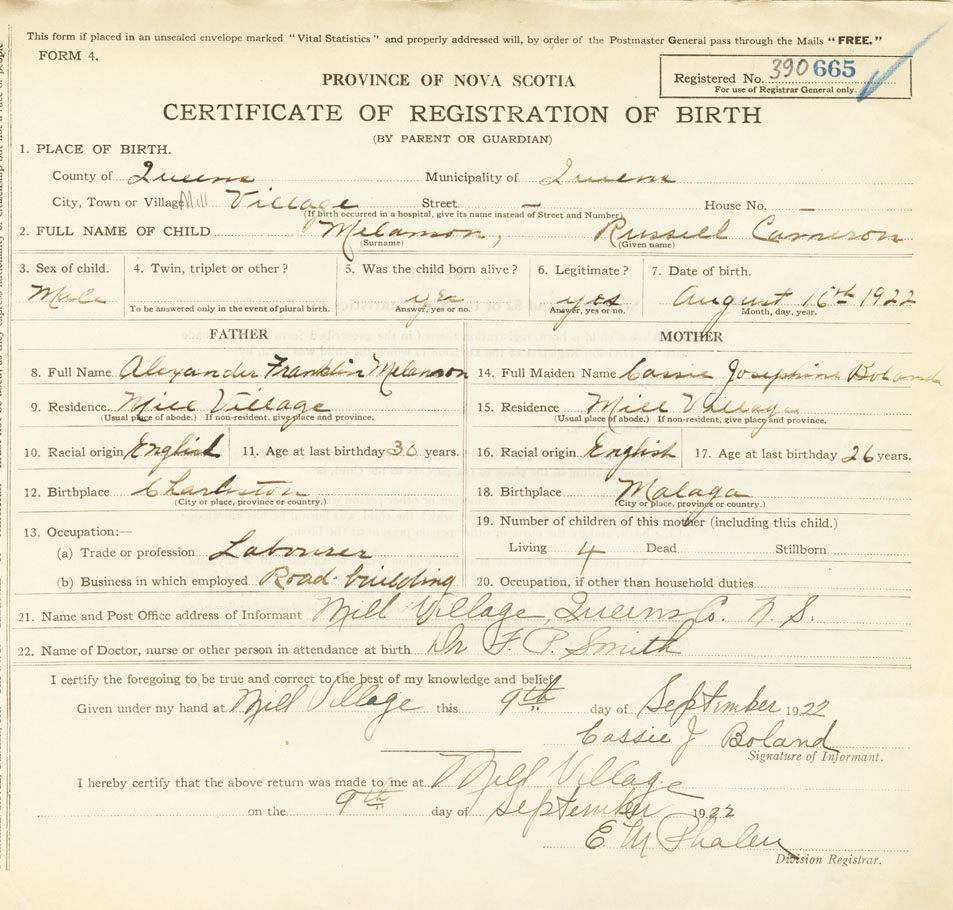 This form if placed in an unsealed envelope marked "Vital Statistics" and properly addressed will, by order of the Postmaster General pass through the Mails "FREE."
FORM 4.
Registered No. 390 665
For use of Registrar General only.
PROVINCE OF NOVA SCOTIA
CERTIFICATE OF REGISTRATION OF BIRTH
(BY PARENT OR GUARDIAN)
1. PLACE OF BIRTH.
County of Queens Municipality of Queens
City, Town or Village Mill Village Street – House No. –
(If birth occurred in a hospital, give its name instead of Street and Number)
2. FULL NAME OF CHILD Melanson, Russell Cameron
(Surname) (Given name)
3. Sex of child. 4. Twin, triplet or other? 5. Was the child born alive? 6. Legitimate? 7. Date of birth.
Male yes yes August 16th 1922
To be answered only in the event of plural birth. Answer, yes or no. Answer, yes or no. Month, day, year.
FATHER MOTHER
8. Full Name Alexander Franklin Melanson 14. Full Maiden Name Cassie Josephine Boland
9. Residence Mill Village 15. Residence Mill Village
(Usual place of abode.) If non-resident, give place and province. (Usual place of abode.) If non-resident, give place and province.
10. Racial origin English 11. Age at last birthday 30 years. 16. Racial origin English 17. Age at last birthday 26 years.
12. Birthplace Charleston 18. Birthplace Malaga
(City or place, province or country.) (City or place, province or country.)
13. Occupation:— 19. Number of children of this mother (including this child.)
(a) Trade or profession Labourer Living 4 Dead Stillborn
(b) Business in which employed Road-building 20. Occupation, if other than household duties
21. Name and Post Office address of Informant Mill Village, Queens Co. N. S.
22. Name of Doctor, nurse or other person in attendance at birth Dr F. P. Smith
I certify the foregoing to be true and correct to the best of my knowledge and belief.
Given under my hand at Mill Village this 9th day of September 1922
Cassie J Boland
Signature of Informant.
I hereby certify that the above return was made to me at Mill Village
on the 9th day of September 1922
E M Phalen
Division Registrar.